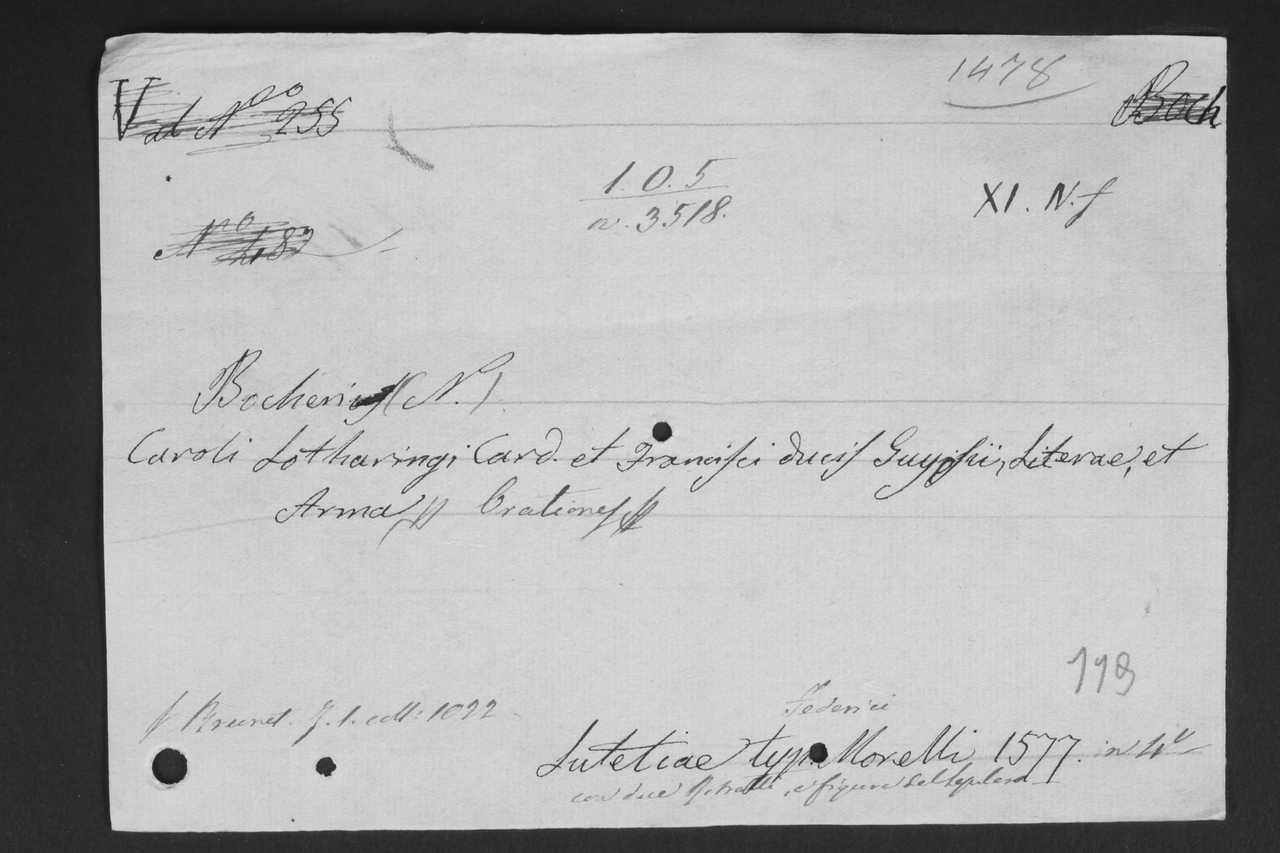 1478
Vad Nº 255
Boch
1.0.5
n. 3518.
XI. N. f
Nº 482
Bocherius (N.)
Caroli Lotharingi Card. et Francisci ducis Guysii, Literae, et
Arma, Orationes
113
f Brunet. T. 1. coll: 1022
Federici
Lutetiae typ. Morelli 1577. in 4º
con due Ritratti, e figura del sepolcro